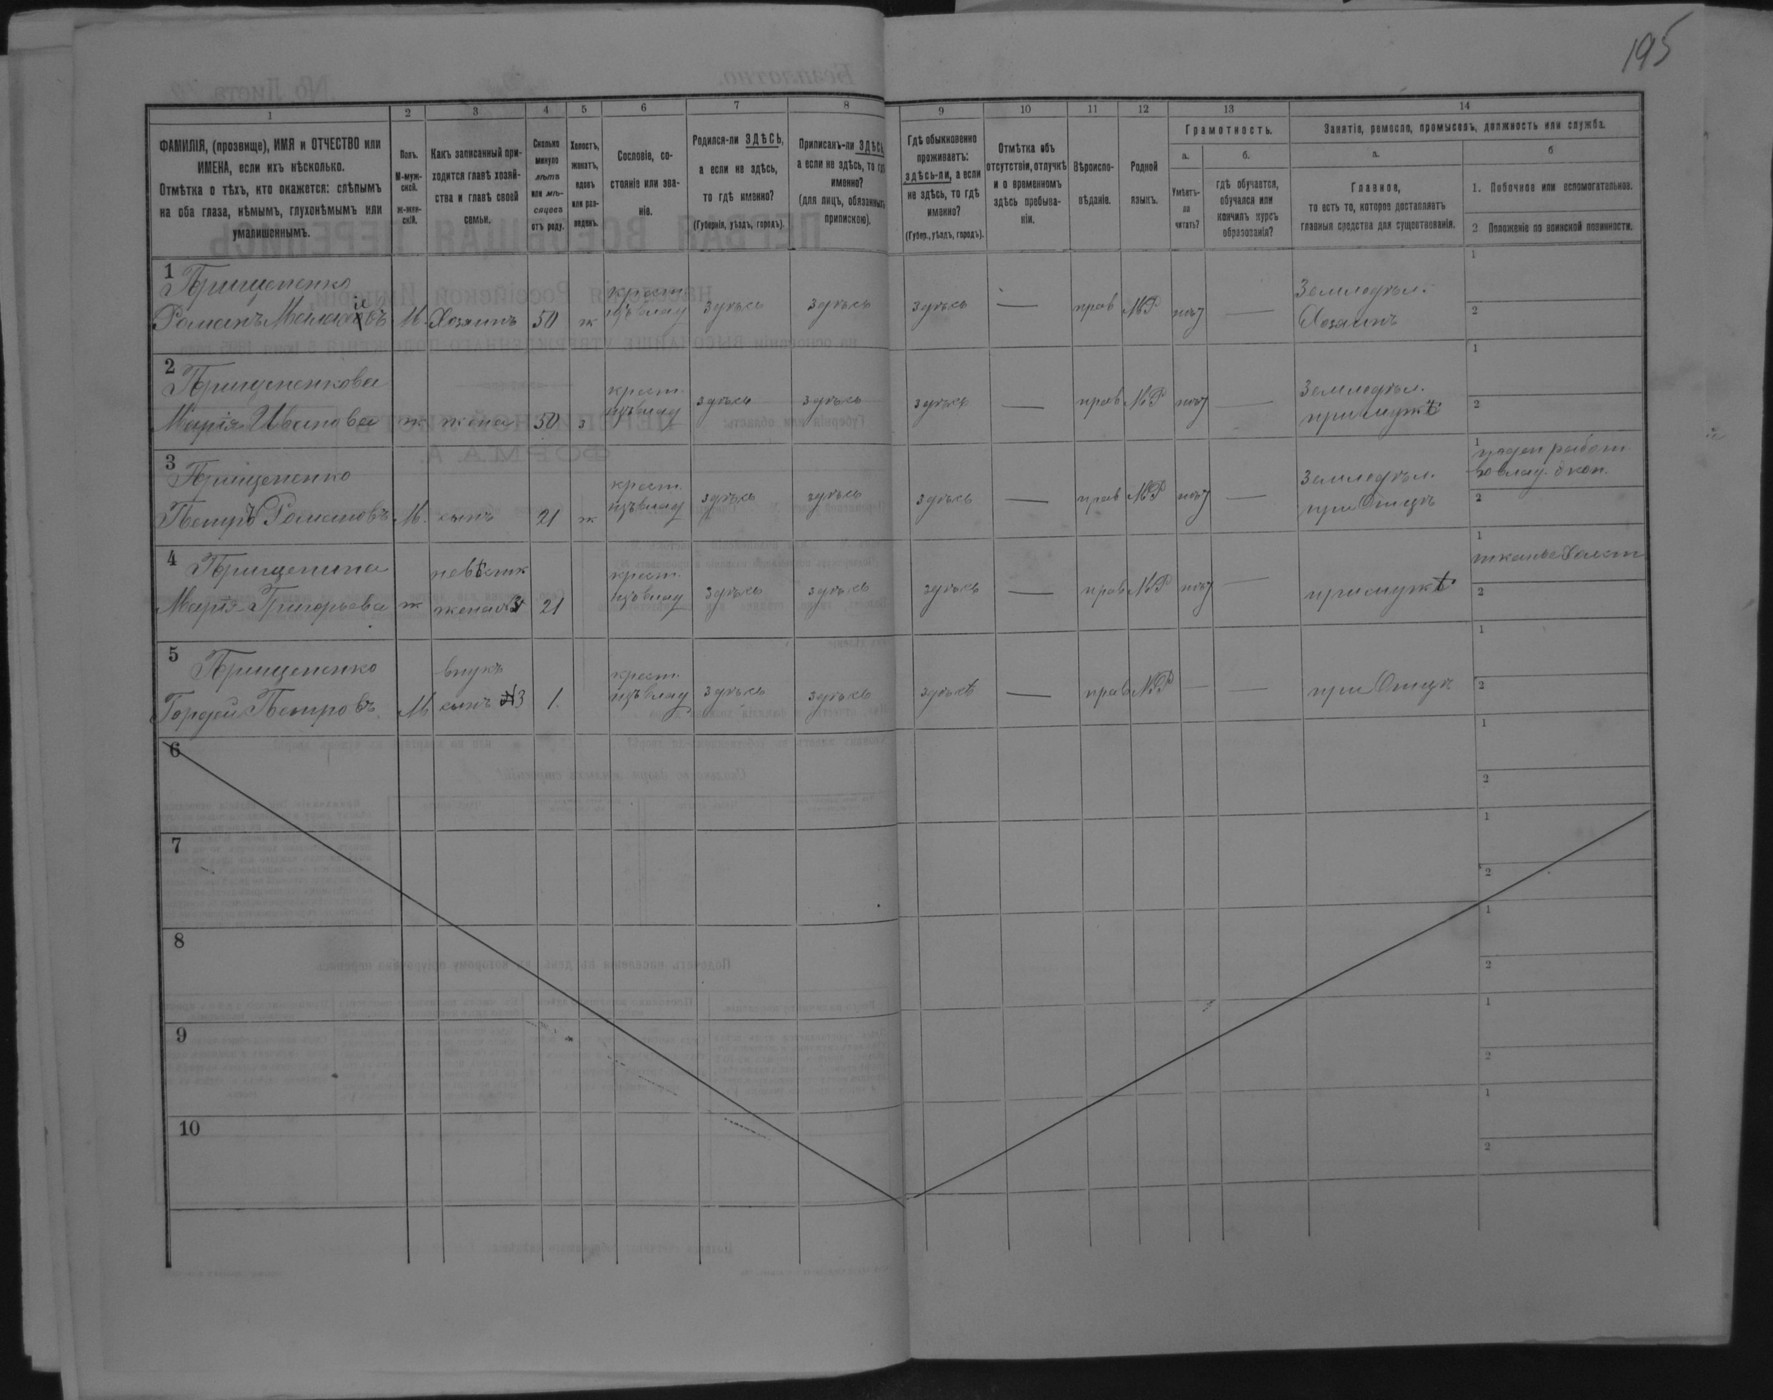 195
1
2
3
4
5
6
7
8
9
10
11
12
13
14
ФАМИЛІЯ, (прозвище), ИМЯ и ОТЧЕСТВО или
ИМЕНА, если ихъ нѣсколько.
Отмѣтка о тѣхъ, кто окажется: слѣпымъ
на оба глаза, нѣмымъ, глухонѣмымъ или
умалишеннымъ.
Полъ.
М-муж-
ской.
Ж-жен-
скій.
Какъ записанный при-
ходится главѣ хозяй-
ства и главѣ своей
семьи.
Сколько
минуло
лѣтъ
или мѣ-
сяцевъ
отъ роду.
Холостъ,
женатъ,
вдовъ
или раз-
веденъ.
Сословіе, со-
стояніе или зва-
ніе.
Родился-ли ЗДѢСЬ,
а если не здѣсь,
то гдѣ именно?
(Губернія, уѣздъ, городъ).
Приписанъ-ли ЗДѢСЬ,
а если не здѣсь, то гдѣ
именно?
(для лицъ, обязанныхъ
припискою).
Гдѣ обыкновенно
проживаетъ:
здѣсь-ли, а если
не здѣсь, то гдѣ
именно?
(Губер., уѣздъ, городъ).
Отмѣтка объ
отсутствіи, отлучкѣ
и о временномъ
здѣсь пребыва-
ніи.
Вѣроиспо-
вѣданіе.
Родной
языкъ.
Грамотность.
а.
Умѣетъ-
ли
читать?
б.
гдѣ обучается,
обучался или
кончилъ курсъ
образованія?
Занятіе, ремесло, промыселъ, должность или служба.
а.
Главное,
то есть то, которое доставляетъ
главныя средства для существованія.
б
1. Побочное или вспомогательное.
2 Положеніе по воинской повинности.
1
Прищепенко
Романъ М. Хозяинъ 50 ж
крест.
изъ влад здѣсь здѣсь здѣсь — прав МР нѣт —
Земледѣл.
Хозяинъ
1
2
2
Прищепенкова
Марія Иванова ж жена 50 з
крест.
изъ влад здѣсь здѣсь здѣсь — прав МР нѣт —
Земледѣл.
при мужѣ
1
2
3
Прищепенко
Петръ Романовъ М. сынъ 21 ж
крест.
изъ влад здѣсь здѣсь здѣсь — прав МР нѣт —
Земледѣл.
при Отцѣ
1
поден работ
2
4
Прищепина
Марія Григорьева ж
невѣстк
жена №3 21
крест.
изъ влад здѣсь здѣсь здѣсь — прав МР нѣт —
при мужѣ
1
тканье Холст
2
5
Прищепенко
Гордей Петровъ М
внукъ
сынъ №3 1
крест.
изъ влад здѣсь здѣсь здѣсь — прав МР — —
при Отцѣ
1
2
6
1
2
7
1
2
8
1
2
9
1
2
10
1
2